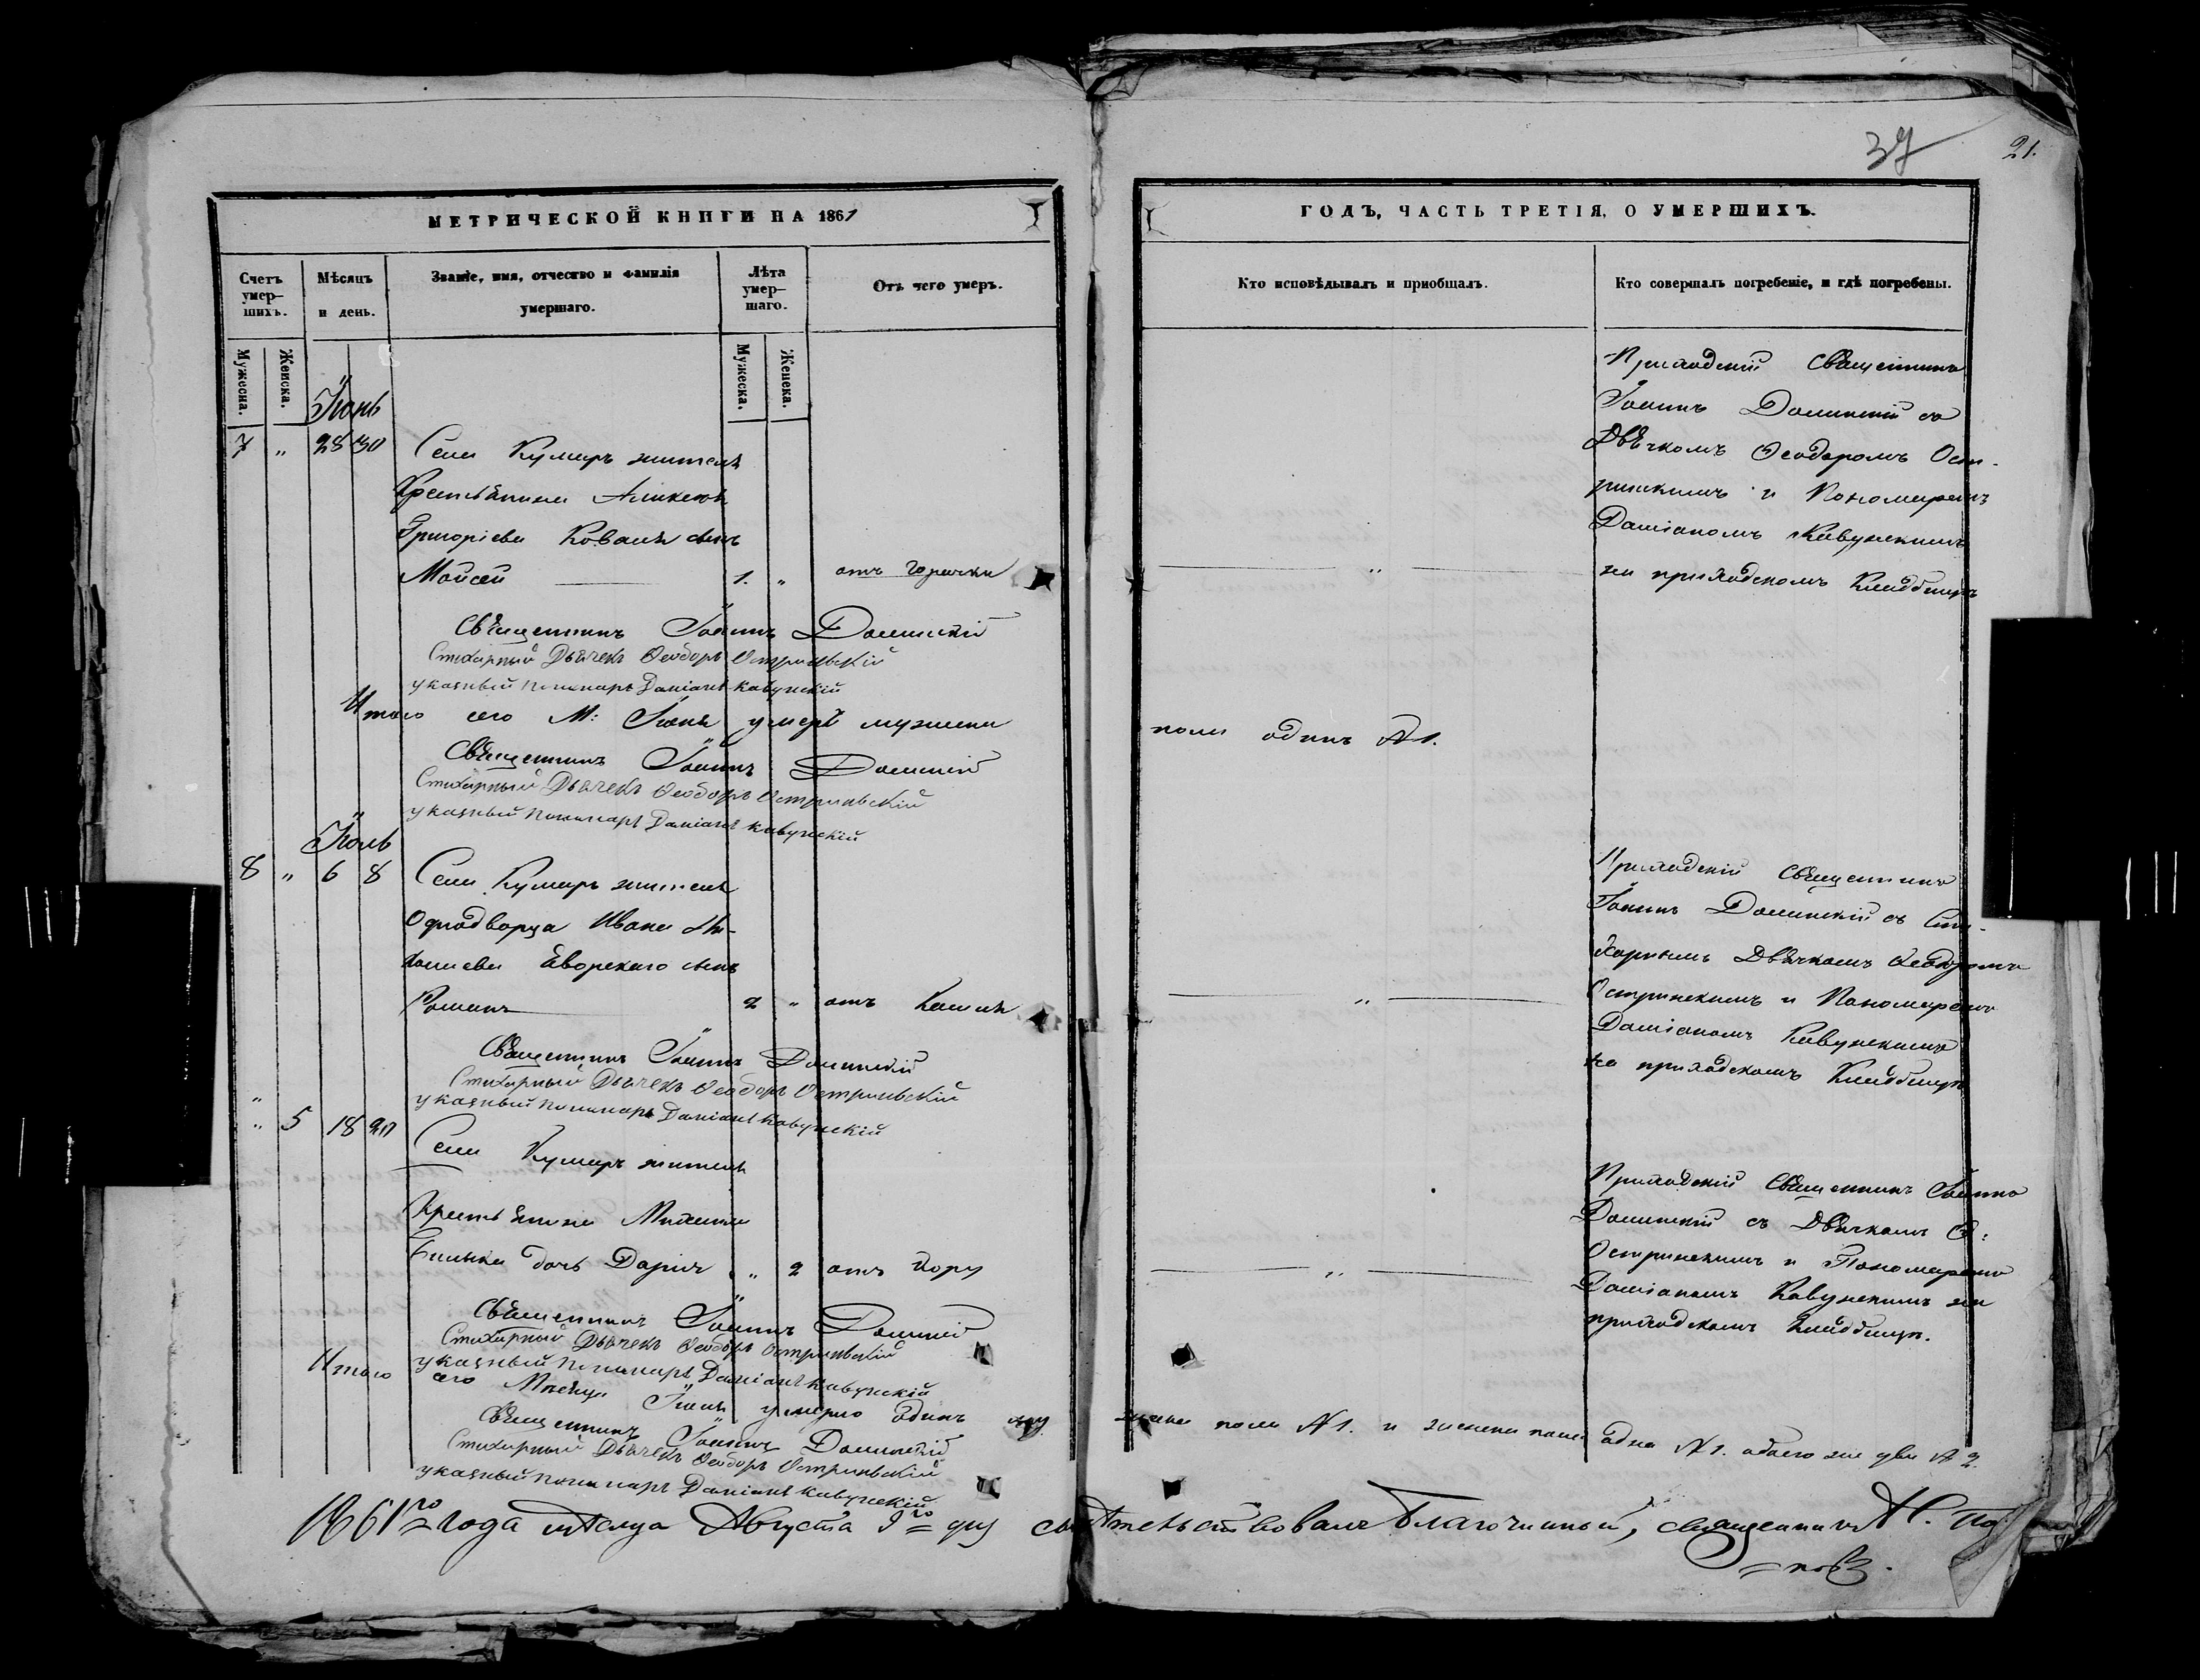 39
21.
МЕТРИЧЕСКОЙ КНИГИ НА 1861
ГОДЪ, ЧАСТЬ ТРЕТІЯ, О УМЕРШИХЪ.
Счетъ умер-
шихъ.
Мѣсяцъ
и день.
Званіе, имя, отчество и фамилія
умершаго.
Лѣта
умер-
шаго.
Отъ чего умеръ.
Кто исповѣдывалъ и пріобщалъ.
Кто совершалъ погребеніе, и гдѣ погребены.
Мужеска.
Женска.
Мужеска.
Женска.
Іюнь
7 " 28 30 Села Кумаръ жителя
Крестьянина Аликсѣя
Григоріева Коваля сынъ
Мойсей 1. " отъ горячки
"
Приходскій Священникъ
Іоаннъ Долинскій съ
Дьячкомъ Ѳеодоромъ Ост-
ринскимъ и Пономаремъ
Даміаномъ Кавунскимъ
на приходскомъ Кладбищѣ
Священникъ Іоаннъ Долинскій
Стихарный Дьячекъ Ѳеодоръ Остриньскій
указный пономарь Даміанъ Кавунскій
Итого сего М: Іюня умерѣ мужеска
пола одинъ №1.
Священникъ Іоаннъ Долинскій
Стихарный Дьячекъ Ѳеодоръ Остриньскій
указный пономарь Даміанъ Кавунскій
Іюль
8 " 6 8 Села Кумаръ жителя
Однодворца Ивана Ми-
хаилева Яворскаго сынъ
Романъ 2 " отъ Кашля
"
Приходскій Священникъ
Іоаннъ Долинскій съ Сти-
харнымъ Дьячкомъ Ѳеодоромъ
Остринскимъ и Пономаремъ
Даміаномъ Кавунскимъ
на приходскомъ Кладбищѣ
Священникъ Іоаннъ Долинскій
Стихарный Дьячекъ Ѳеодоръ Остриньскій
указный пономарь Даміанъ Кавунскій
" 5 18 20 Села Кумаръ жителя
Крестьянина Михаила
дочь Дарія " 2 отъ Кору
"
Приходскій Священникъ Іоаннъ
Долинскій съ Дьячкомъ Ѳ:
Остринскимъ и Пономаремъ
Даміаномъ Кавунскимъ на
приходскомъ Кладбищѣ.
Священникъ Іоаннъ Долинскій
Стихарный Дьячекъ Ѳеодоръ Остриньскій
указный пономарь Даміанъ Кавунскій
Итого сего Мѣсяца Іюля умерло одинъ муже
ска пола №1. и женска пола одна №1. обоего же два №2.
Священникъ Іоаннъ Долинскій
Стихарный Дьячекъ Ѳеодоръ Остриньскій
указный пономарь Даміанъ Кавунскій
1861го года мѣсяца Августа 9го дня свидѣтельствовалъ Благочинный, священникъ Н. По-
повъ.